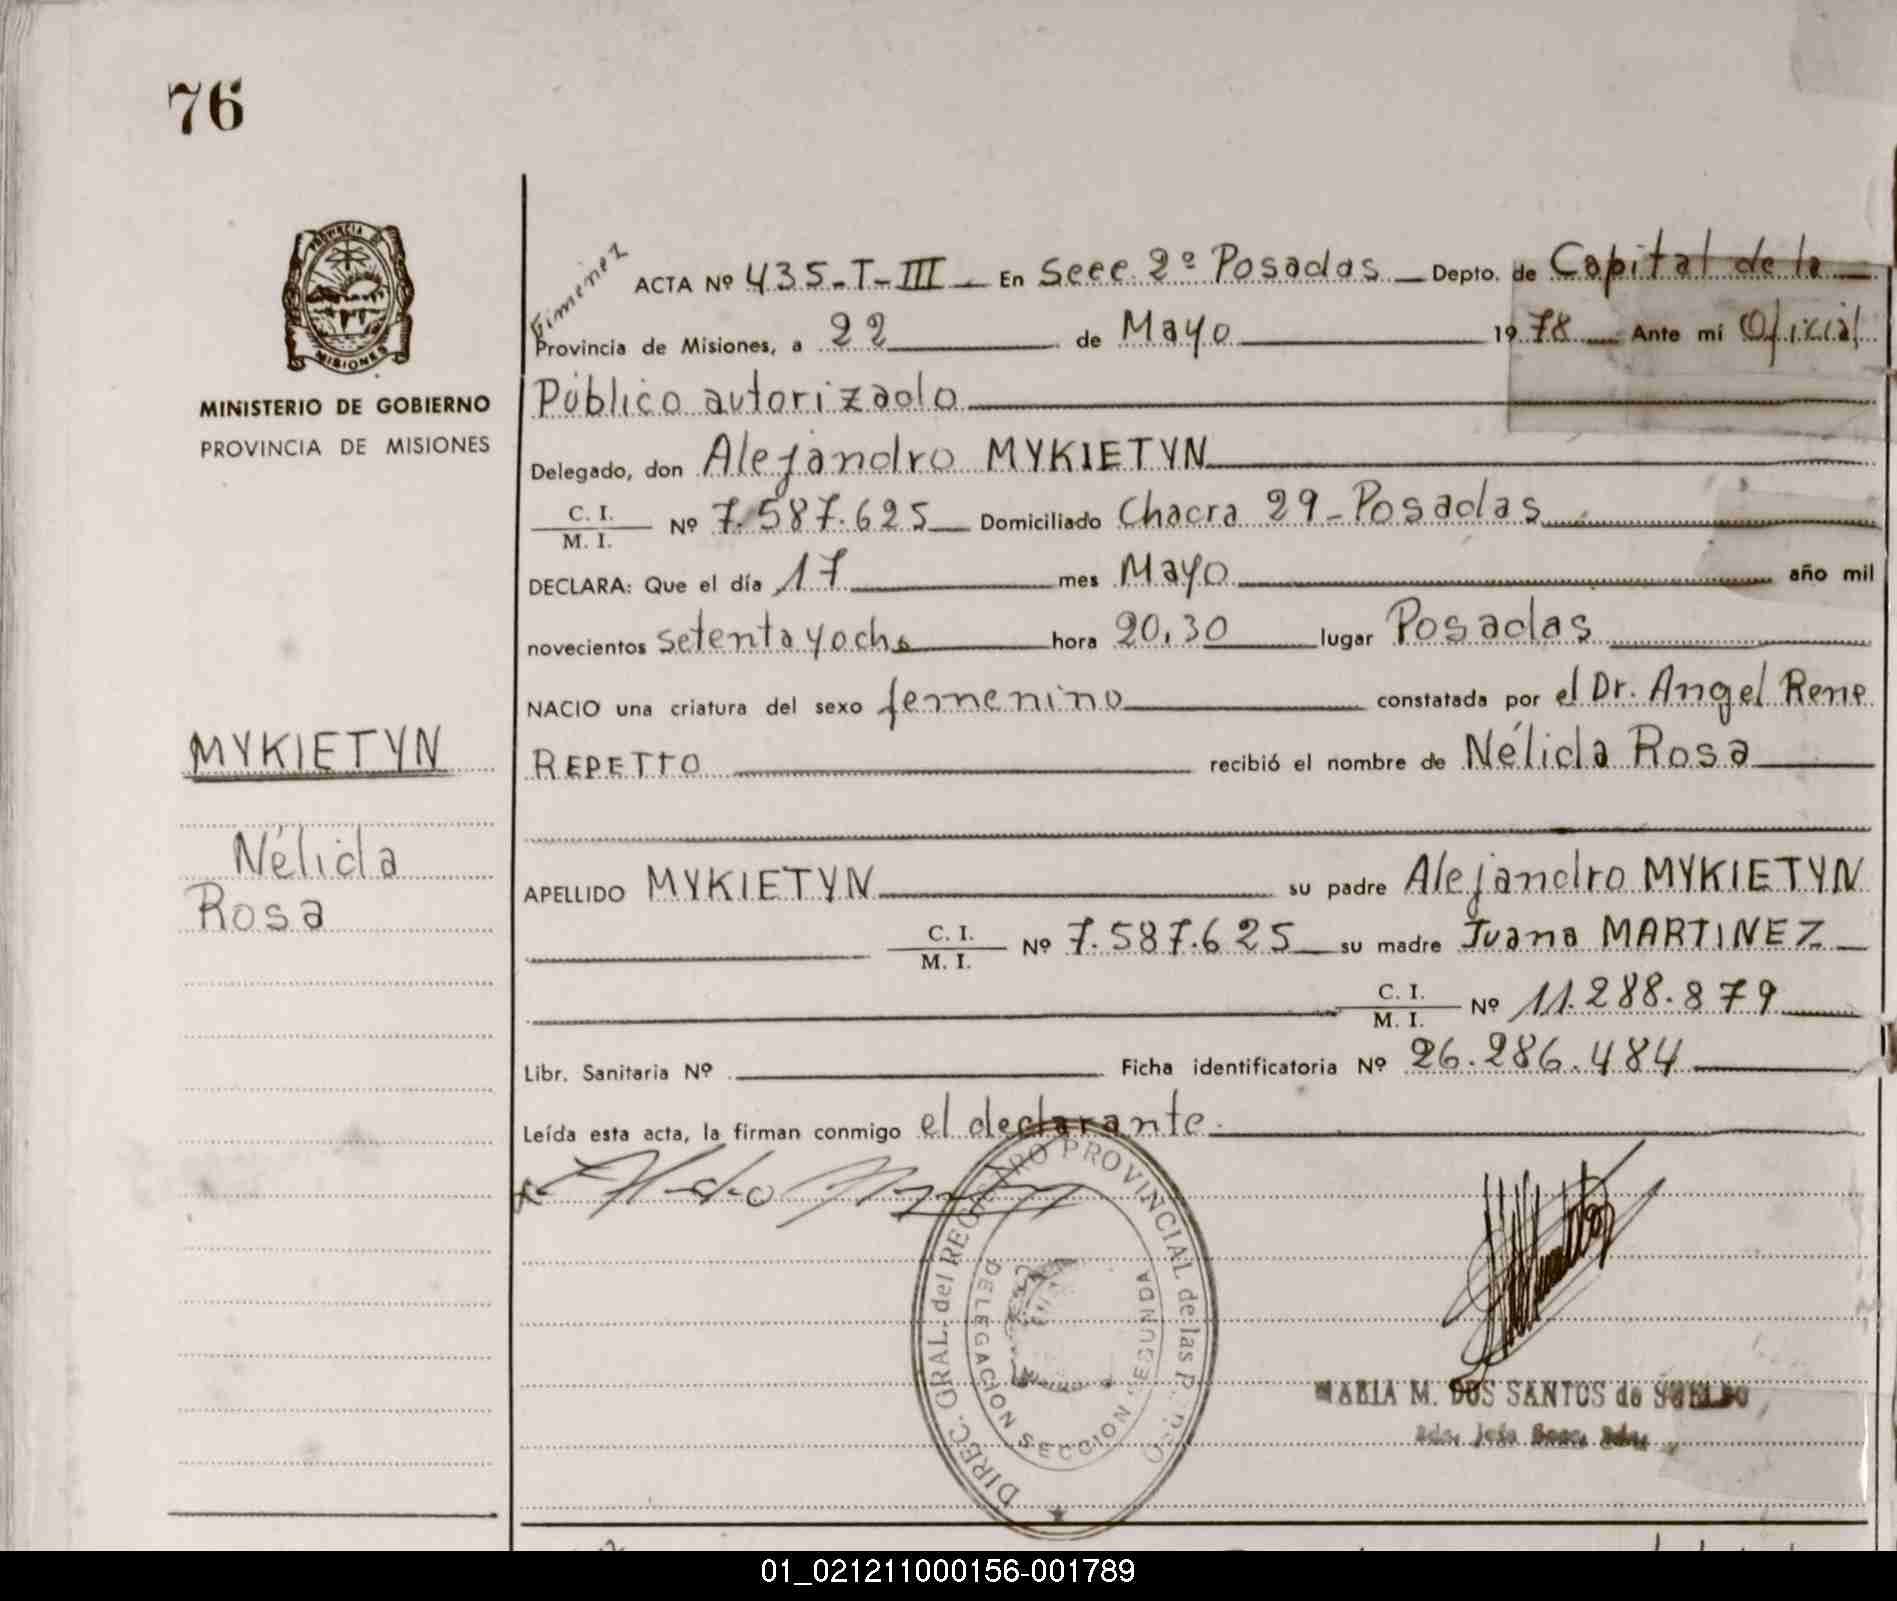 76
PROVINCIA DE
MISIONES
MINISTERIO DE GOBIERNO
PROVINCIA DE MISIONES
MYKIETYN
Nélida
Rosa
Gimenez
ACTA Nº 435-T-III- En Secc. 2º Posadas Depto. de Capital de la
Provincia de Misiones, a 22 de Mayo 1978 Ante mi Oficial
Público autorizado
Delegado, don Alejandro MYKIETYN
C. I.
M. I. Nº 7.587.625 Domiciliado Chacra 29-Posadas
DECLARA: Que el día 17 mes Mayo año mil
novecientos setenta y ocho hora 20.30 lugar Posadas
NACIO una criatura del sexo femenino constatada por el Dr. Angel Rene
REPETTO recibió el nombre de Nélida Rosa
APELLIDO MYKIETYN su padre Alejandro MYKIETYN
C. I.
M. I. Nº 7.587.625 su madre Juana MARTINEZ
C. I.
M. I. Nº 11.288.879
Libr. Sanitaria Nº Ficha identificatoria Nº 26.286.484
Leída esta acta, la firman conmigo el declarante.
DIREC. GRAL. del REGISTRO PROVINCIAL de las
DELEGACION SECCION SEGUNDA
MARIA M. DOS SANTOS de
01_021211000156-001789